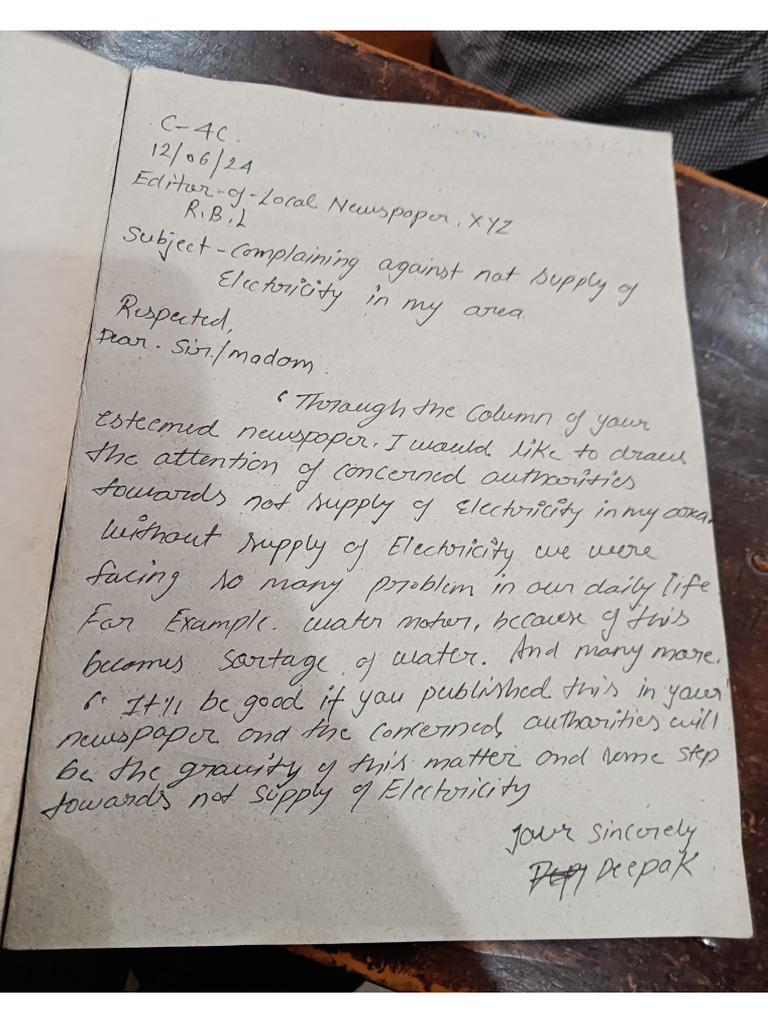 C-4C.
12/06/24
Editor-of-Local Newspaper, XYZ
R.B.L
Subject-Complaining against not supply of
Electricity in my area.
Respected,
Dear. Sir./madam
' Through the Column of your
esteemed newspaper. I would like to draw
the attention of concerned authorities
towards not supply of Electricity in my area.
Without supply of Electricity we were
facing so many problem in our daily life
For Example. water motor, because of this
becomes sortage of water. And many more.
" It'll be good if you published this in your
newspaper and the concerned, authorities will
be the gravity of this matter and some step
towards not supply of Electricity
Your Sincerely
Deepak